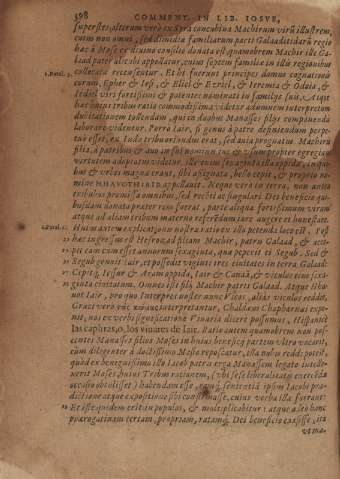 398 COMMENT. IN LIB. IOSVE,
superstes, alterum vero ex Syra concubina Machirum virū illustrem,
non omnes, sed dimidia familiarum parti Galaaditidarū regio
hac à Mose ex diuino consilio donata est quamobrem Machir ille Ga-
laad pater alicubi appellatur, enim septem familiæ in illis regionibus
1. Paral. 5. collocatæ recensentur. Et hi fuerunt principes domus cognationis
earum, Epher & Iesi, & Eliel & Ezriel, & Ieremia & Odaia, &
Iediel viri fortissimi & potentes nominati in familiis suis. Atque
hæc huius tribus ratio commodissima videtur ad dumtum interpretum
dubitationem tollendam, qui in duobus Manasses filijs componendis
laborare videntur. Porro Iair, si genus à patre desumendum perpe-
tuò esset, ex Iuda tribu oriundus erat, sed auia prognatus Machiris
filia, à patribus & auunculis
virtutem adoptatus videtur. illi enim sexaginta illa oppida, in qui-
bus & vrbes magnæ erant, sibi asignata, bello cepit, & proprio no-
mine HHAVOTHIAIR appellauit. Neque vero in terra, non antea
tribubus promissa omnibus, sed recēs ei ac singulari Dei beneficio qui-
busdam donata præter cæn ferat, parte aliqua fortissimum virum
atque ad aliam tribum materno referēdum iure augere et honestare.
1. Paral. 2. Huius autem explicationis nostræ rationem illa petenda loco est, Post
hæc ingressus est Hesron, ad filiam Machir, patris Galaad, & acce-
pit eam cum esset annorum sexaginta, quæ peperit ei Segub. Sed &
Segub genuit Iair, et possedit viginti tres ciuitates in terra Galaad.
Cepitq́; Iessur & Aram oppida, Iair & Canaā, & viculos eius sexa-
ginta ciuitatum. Omnes isti filij Machir patris Galaad. Atque Hha-
uot Iair, pro quo Interpres noster nunc Vicos, aliàs viculos reddit,
Græci verò interpretantur, Chaldæus Chapharanei expo-
nit, nos ex verbi significatione Viuaria dicere possumus, Hispanè
las caphras, o, los viuares de Iair. Rationem autem quamobrem non po-
scentes Manasses filius Moses in huius beneficij partem vltro vocarit,
cùm diligenter à doctissimo Masio reposcatur, illa nobis reddi potest,
quòd ex benignissimo illa Iacob patris erga Manassem legato intelle-
xerit Moses, huius Tribus rationem, (vbi sese liberalitatis exercēdæ
occasio obtulisset) habendam esse, eamq́; sententiā ipsius Iacobi præ-
dictione atque expositione sibi confirmasse, cuius verba illa fuerant:
Et iste quidem erit in populos, & multiplicabitur: atque adeo hanc
prærogatiuam certam, propriam, ratamq́; Dei beneficio extitisse, ita
vt ma-